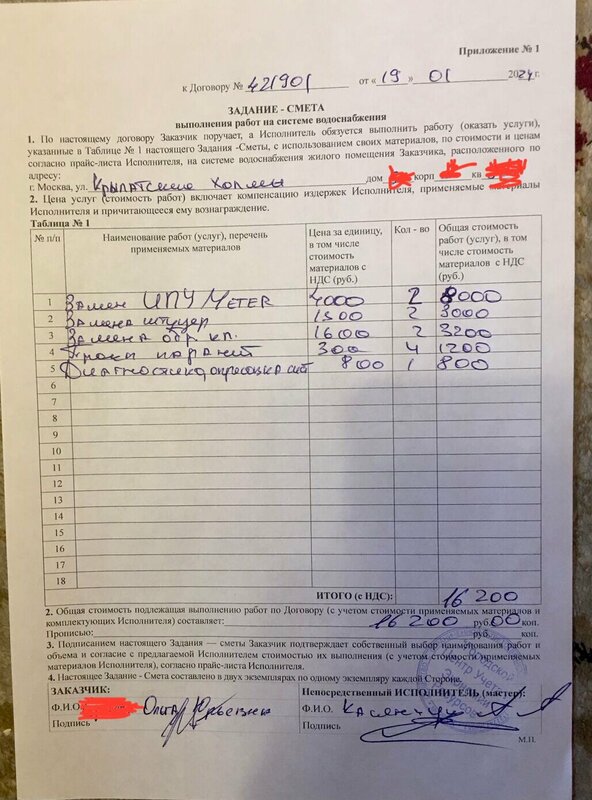 Приложение № 1
к Договору № 421901 от « 19 » 01 2024г.
ЗАДАНИЕ - СМЕТА
выполнения работ на системе водоснабжения
1. По настоящему договору Заказчик поручает, а Исполнитель обязуется выполнить работу (оказать услуги),
указанные в Таблице № 1 настоящего Задания -Сметы, с использованием своих материалов, по стоимости и ценам
согласно прайс-листа Исполнителя, на системе водоснабжения жилого помещения Заказчика, расположенного по
адресу:
г. Москва, ул. Крылатские холмы дом корп кв
2. Цена услуг (стоимость работ) включает компенсацию издержек Исполнителя, применяемые материалы
Исполнителя и причитающееся ему вознаграждение.
Таблица № 1
№ п/п Наименование работ (услуг), перечень применяемых материалов Цена за единицу, в том числе стоимость материалов с НДС (руб.) Кол - во Общая стоимость работ (услуг), в том числе стоимость материалов с НДС (руб.)
1 Замен ИПУ METER 4000 2 8000
2 Замена штуцер 1500 2 3000
3 Замена обр кл. 1600 2 3200
4 300 4 1200
5 Диагностика опресовка сист 800 1 800
6
7
8
9
10
11
12
13
14
15
16
17
18
ИТОГО (с НДС): 16 200
2. Общая стоимость подлежащая выполнению работ по Договору (с учетом стоимости применяемых материалов и
комплектующих Исполнителя) составляет: 16 200 руб. 00 коп.
Прописью: руб. коп.
3. Подписанием настоящего Задания — сметы Заказчик подтверждает собственный выбор наименования работ и
объема и согласие с предлагаемой Исполнителем стоимостью их выполнения (с учетом стоимости применяемых
материалов Исполнителя), согласно прайс-листа Исполнителя.
4. Настоящее Задание - Смета составлено в двух экземплярах по одному экземпляру каждой Стороне.
ЗАКАЗЧИК: Непосредственный ИСПОЛНИТЕЛЬ (мастер):
Ф.И.О. Ольга Ф.И.О.
Подпись Подпись
М.П.